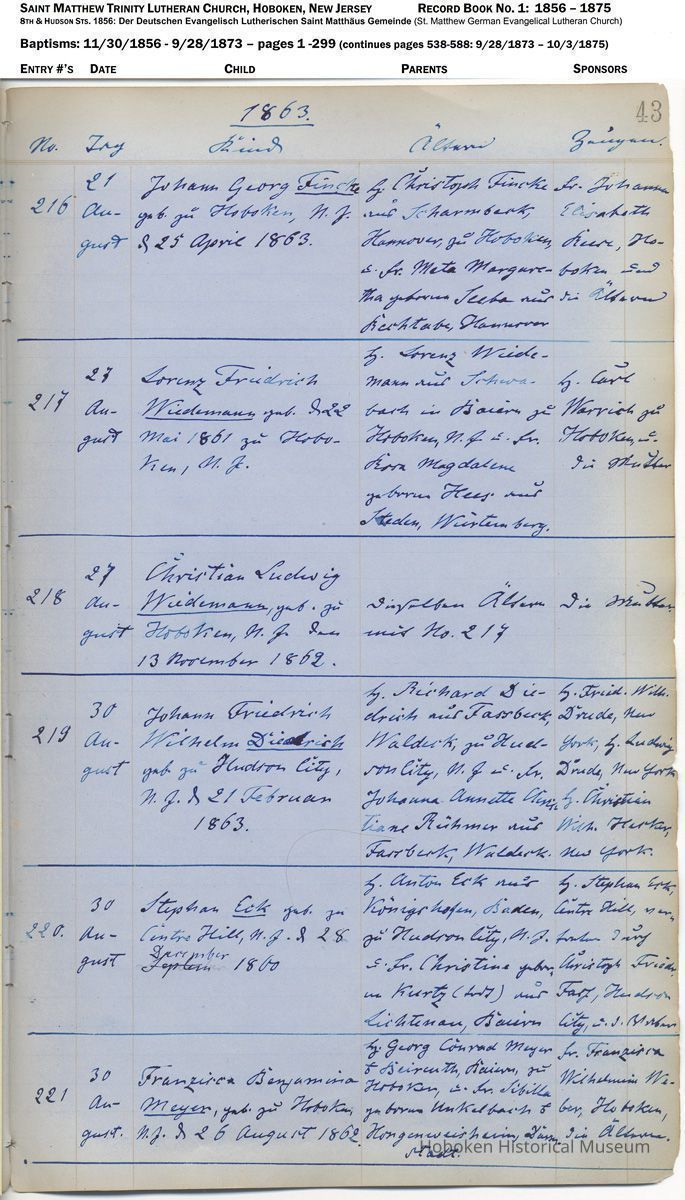 SAINT MATTHEW TRINITY LUTHERAN CHURCH, HOBOKEN, NEW JERSEY RECORD BOOK NO. 1: 1856 – 1875
8TH & HUDSON STS. 1856: Der Deutschen Evangelisch Lutherischen Saint Matthäus Gemeinde (St. Matthew German Evangelical Lutheran Church)
Baptisms: 11/30/1856 - 9/28/1873 – pages 1 -299 (continues pages 538-588: 9/28/1873 – 10/3/1875)
ENTRY #'S DATE CHILD PARENTS SPONSORS
43
1863.
No. Tag Kind Ältern Zeugen.
216
21
Au-
gust
Johann Georg Fincke
geb. zu Hoboken, N. J.
d 25 April 1863.
H. Christoph Fincke
aus Scharmbeck,
Hannover, zu Hoboken,
u. Fr. Meta Margare-
tha geboren Seeba aus
Hannover
Fr. Johanna
Elisabeth
Ho-
boken und
die Ältern
217
27
Au-
gust
Lorenz Friedrich
Wiedemann geb. d 22
Mai 1861 zu Hobo-
ken, N. J.
H. Lorenz Wiede-
mann aus Schwa-
bach in Baiern zu
Hoboken, N. J. u. Fr.
Rosa Magdalene
geboren Hees aus
Würtemberg.
H. Carl
Warrich zu
Hoboken, u.
die Mutter
218
27
Au-
gust
Christian Ludwig
Wiedemann, geb. zu
Hoboken, N. J. den
13 November 1862.
Dieselben Ältern
mit No. 217
Die Mutter
219
30
Au-
gust
Johann Friedrich
Wilhelm Diedrich
geb zu Hudson City,
N. J. d 21 Februar
1863.
H. Richard Die-
drich aus Fassbeck,
Waldeck, zu Hud-
son City, N. J u. Fr.
Johanna Annette Chris-
tiane Rühmer aus
Fassbeck, Waldeck.
H. Fried. Wilh.
Drude, New
York, H. Ludwig
Drude, New York
H. Christian
Wilh. Hecker,
New York.
220.
30
Au-
gust
Stephan Eck geb. zu
Centre Hill, N. J. d 28
December
Septem 1860
H. Anton Eck aus
Königshofen, Baden,
zu Hudson City, N. J.
u. Fr. Christine gebor-
en Kurtz (todt) aus
Lichtenau, Baiern
H. Stephan Eck,
Centre Hill, ver-
treten durch
Christoph Friedr.
Hudson
City, u. d. Vater
221
30
Au-
gust.
Franzisca Benjamina
Meyer, geb. zu Hoboken,
N. J. d 26 August 1862
H. Georg Conrad Meyer
Beireuth, Baiern, zu
Hoboken, u. Fr. Sibilla
geboren Unkelbach
Darm-
stadt.
Fr. Franzisca
Wilhelmin We-
ber, Hoboken,
die Ältern.
Hoboken Historical Museum